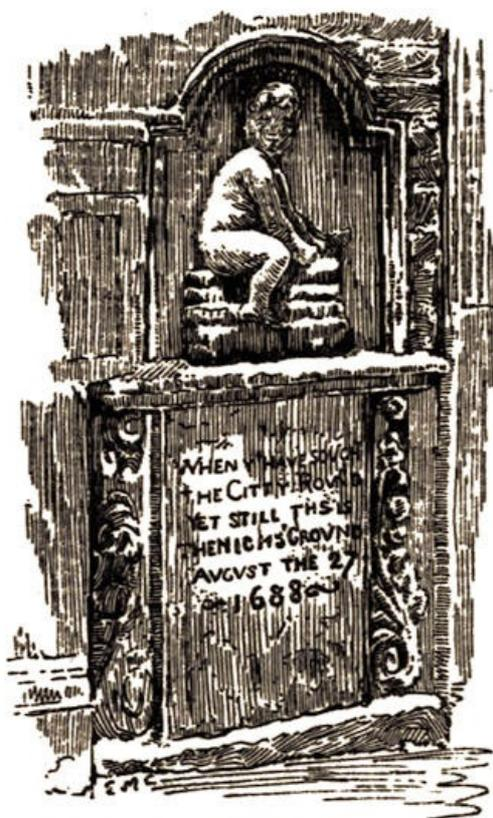 WHEN Y HAVE SOUGH
THE CITTY ROUND
YET STILL THS IS
THE HIGHS GROUND
AUGUST THE 27
1688
E M C